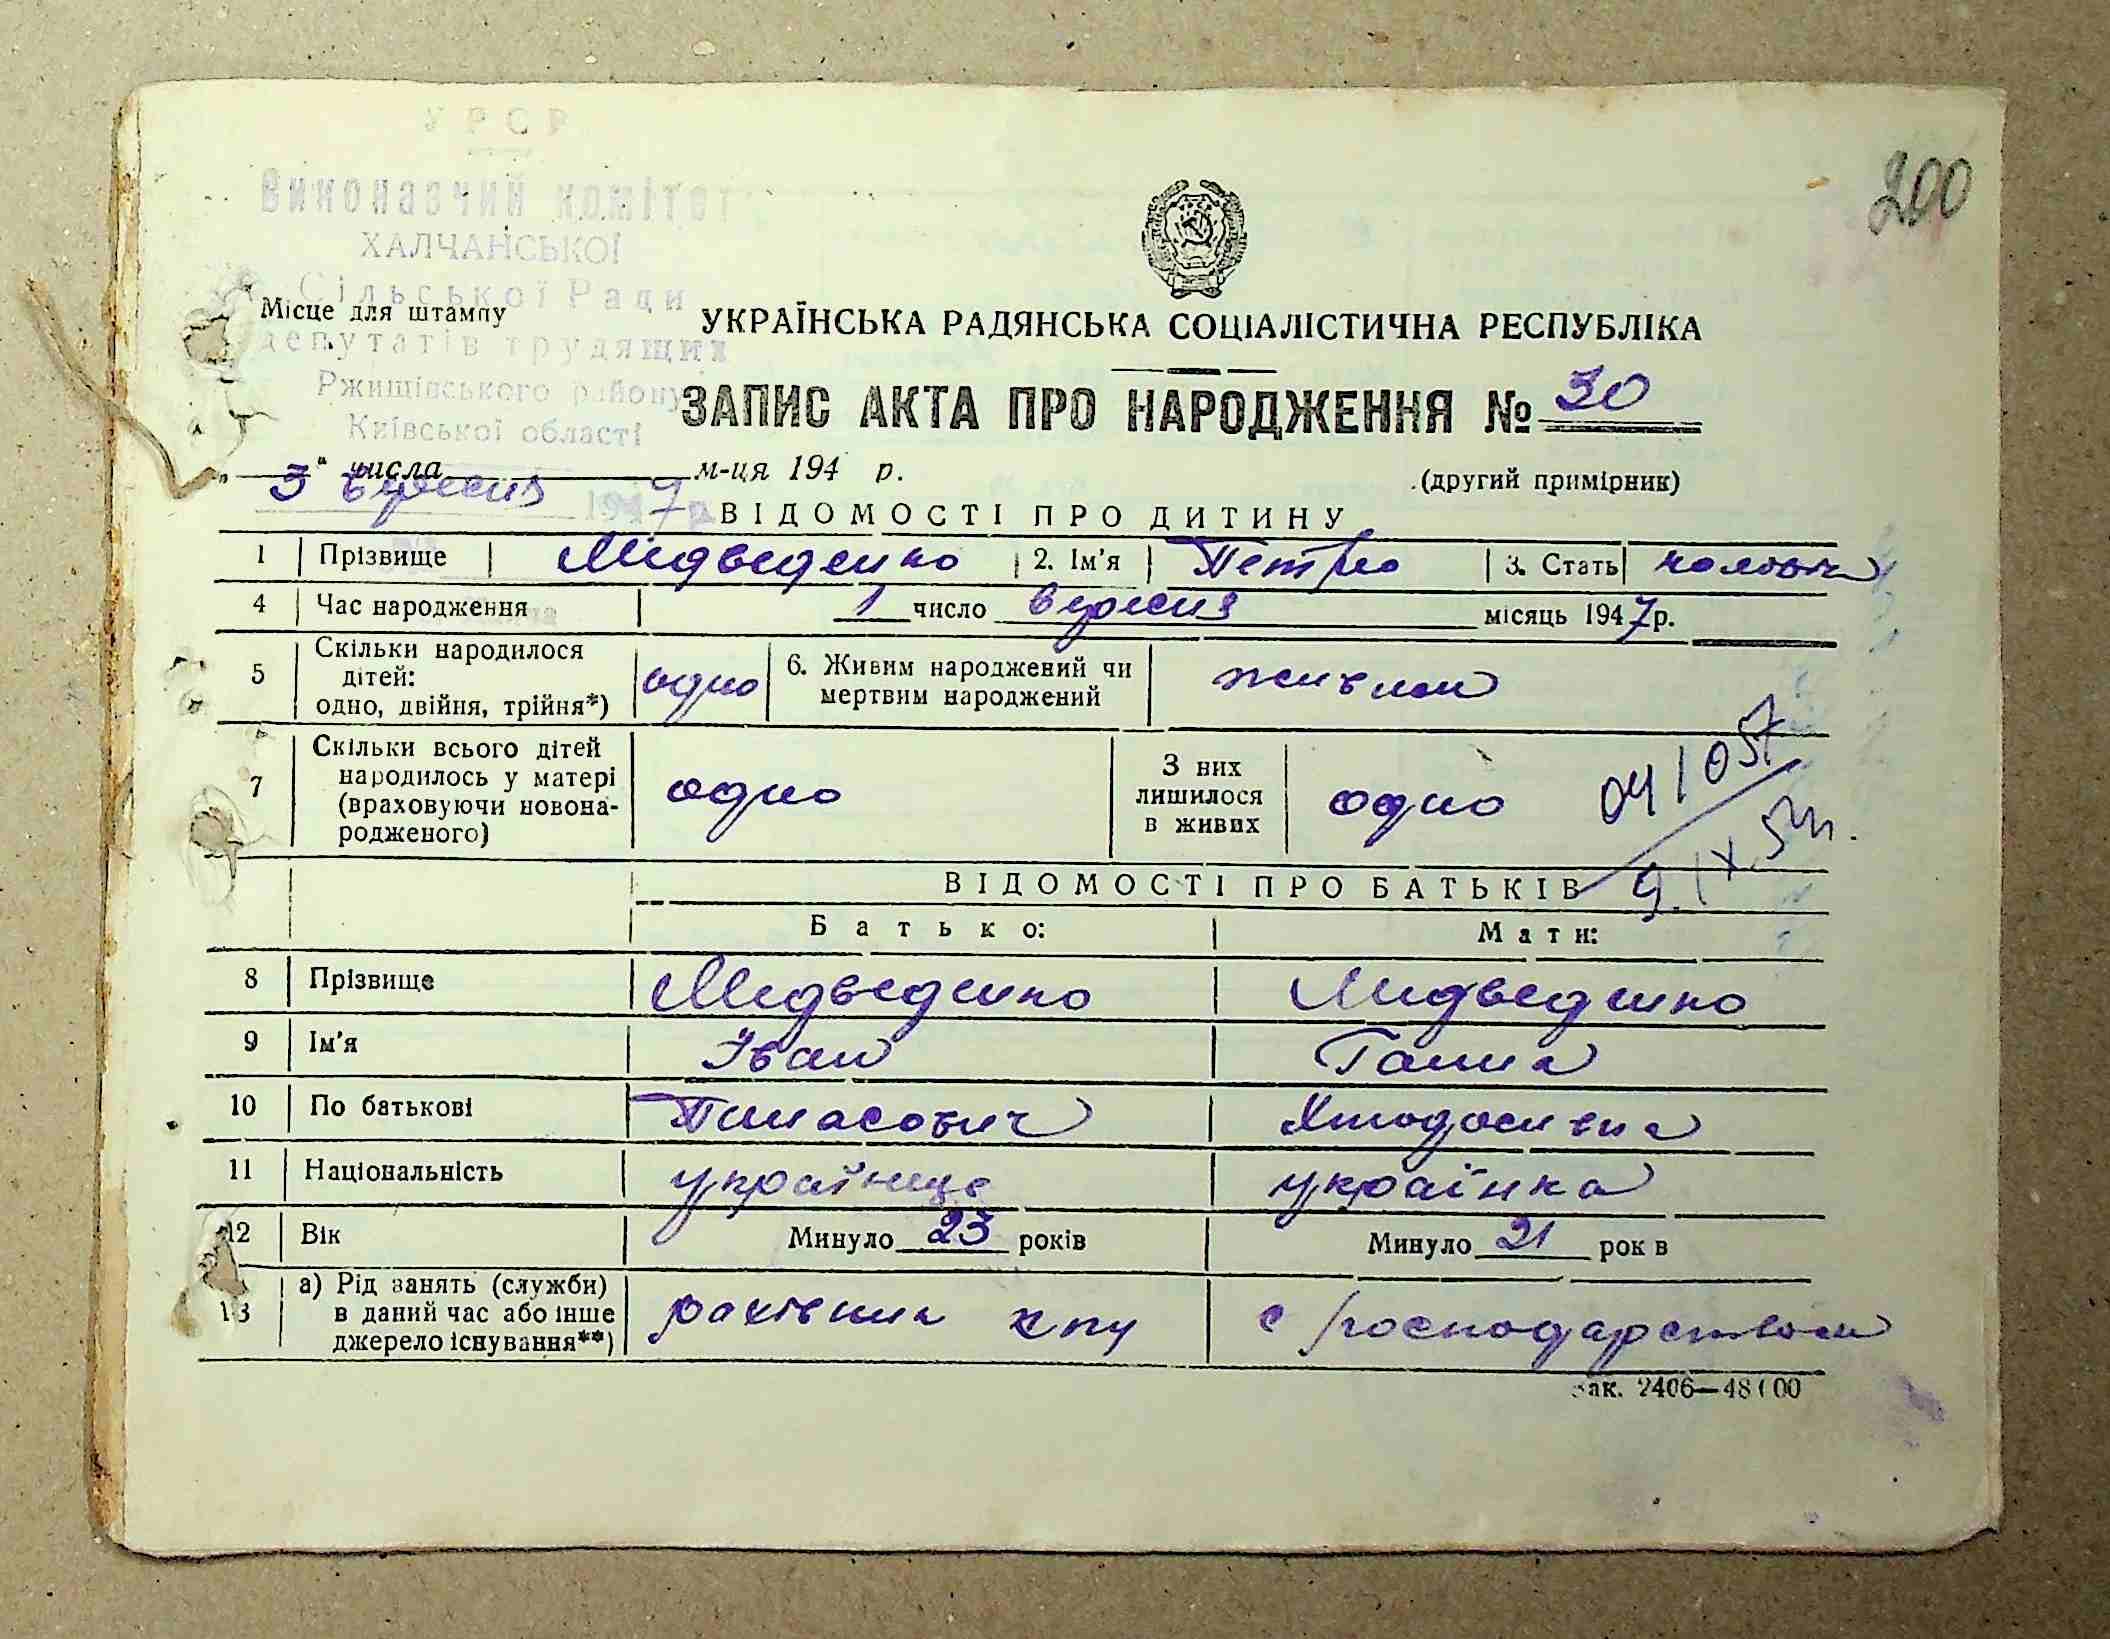 200
УРСР
Виконавчий комітет
ХАЛЧАНСЬКОЇ
Сільської Ради
депутатів трудящих
Ржищівського району
Київської області
Місце для штампу
УКРАЇНСЬКА РАДЯНСЬКА СОЦІАЛІСТИЧНА РЕСПУБЛІКА
ЗАПИС АКТА ПРО НАРОДЖЕННЯ № 30
„ " числа м-ця 194 р.
(другий примірник)
3 вересня 1947 р.
ВІДОМОСТІ ПРО ДИТИНУ
1 Прізвище Медведенко 2. Ім'я Петро 3. Стать
4 Час народження 1 число вересня місяць 1947 р.
5 Скільки народилося дітей: одно, двійня, трійня*) одно 6. Живим народжений чи мертвим народжений живим
7 Скільки всього дітей народилось у матері (враховуючи новонародженого) одно З них лишилося в живих одно
041057
9.IX.57р.
ВІДОМОСТІ ПРО БАТЬКІВ
Батько: Мати:
8 Прізвище Медведенко Медведенко
9 Ім'я Іван Ганна
10 По батькові Панасович
11 Національність українець українка
12 Вік Минуло 23 років Минуло 21 рок в
13 а) Рід занять (служби) в даний час або інше джерело існування**) рахівник с/господарством
Зак. 2406—48100